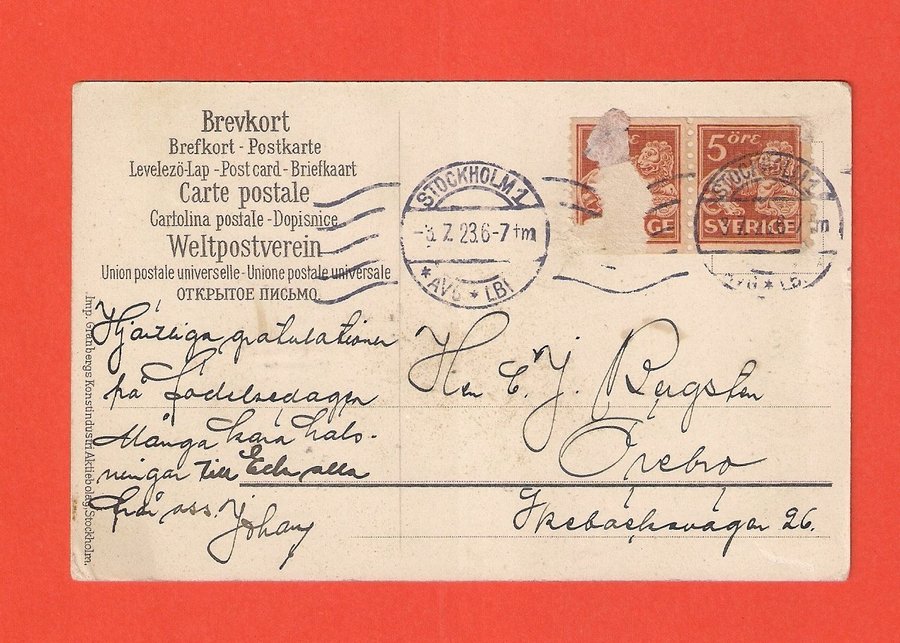 Brevkort
Brefkort - Postkarte
Levelező-Lap - Post card - Briefkaart
Carte postale
Cartolina postale - Dopisnice
Weltpostverein
Union postale universelle - Unione postale universale
ОТКРЫТОЕ ПИСЬМО.
Imp. Granbergs Konstindustri Aktiebolag, Stockholm.
STOCKHOLM.1
7. 23.6-7 tm
* AVG * LBR
GE
5 ÖRE
SVERIGE
STOCKHOLM.1
Hjärtliga gratulationer
på födelsedagen
Många kära häls-
ningar till Eder alla
från oss. Johan
Herr C. J. Bergsten
Örebro
26.